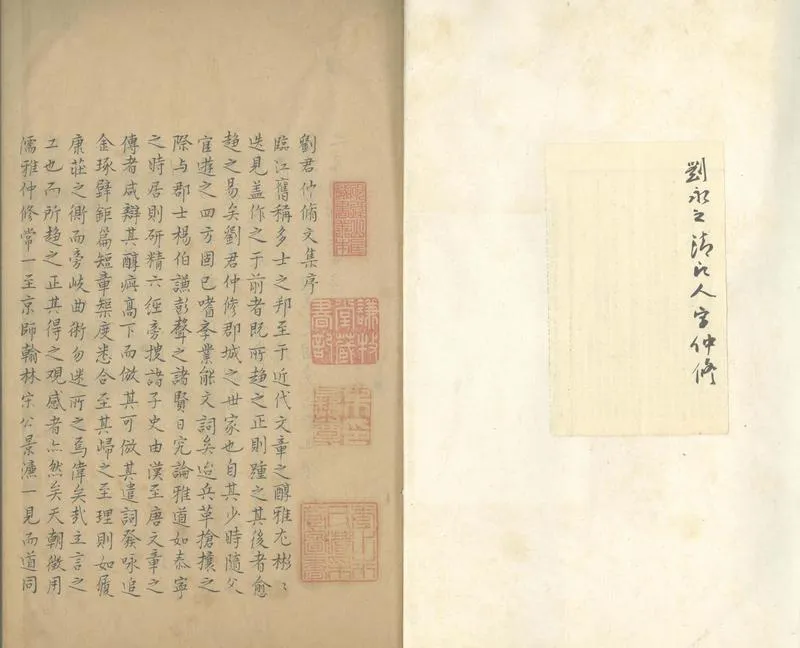 劉永之清江人字仲脩
劉君仲脩文集序
臨江舊稱多士之邦至于近代文章之醇雅尤彬〻
迭見盖作之于前者既所趋之正則踵之其後者愈
趋之易矣劉君仲修郡城之世家也自其少時隨父
宦遊之四方固已嗜李業能文詞矣迨兵革搶攘之
際与郡士楊伯謙彭聲之諸賢日究論雅道如泰寧
之時居則研精六經旁搜諸子史由漢至唐文章之
傳者咸辯其醇疵髙下而倣其可倣其遣詞發咏追
金琢璧鉅篇短章榘度悉合至其㱕之至理則如履
康莊之衢而旁岐曲術勿迷所之焉偉矣㢤主言之
工也而所趋之正其得之觀感者亦然矣天朝徵用
儒雅仲修常一至京師翰林宋公景濂一見而道同
謙牧
堂藏
書記